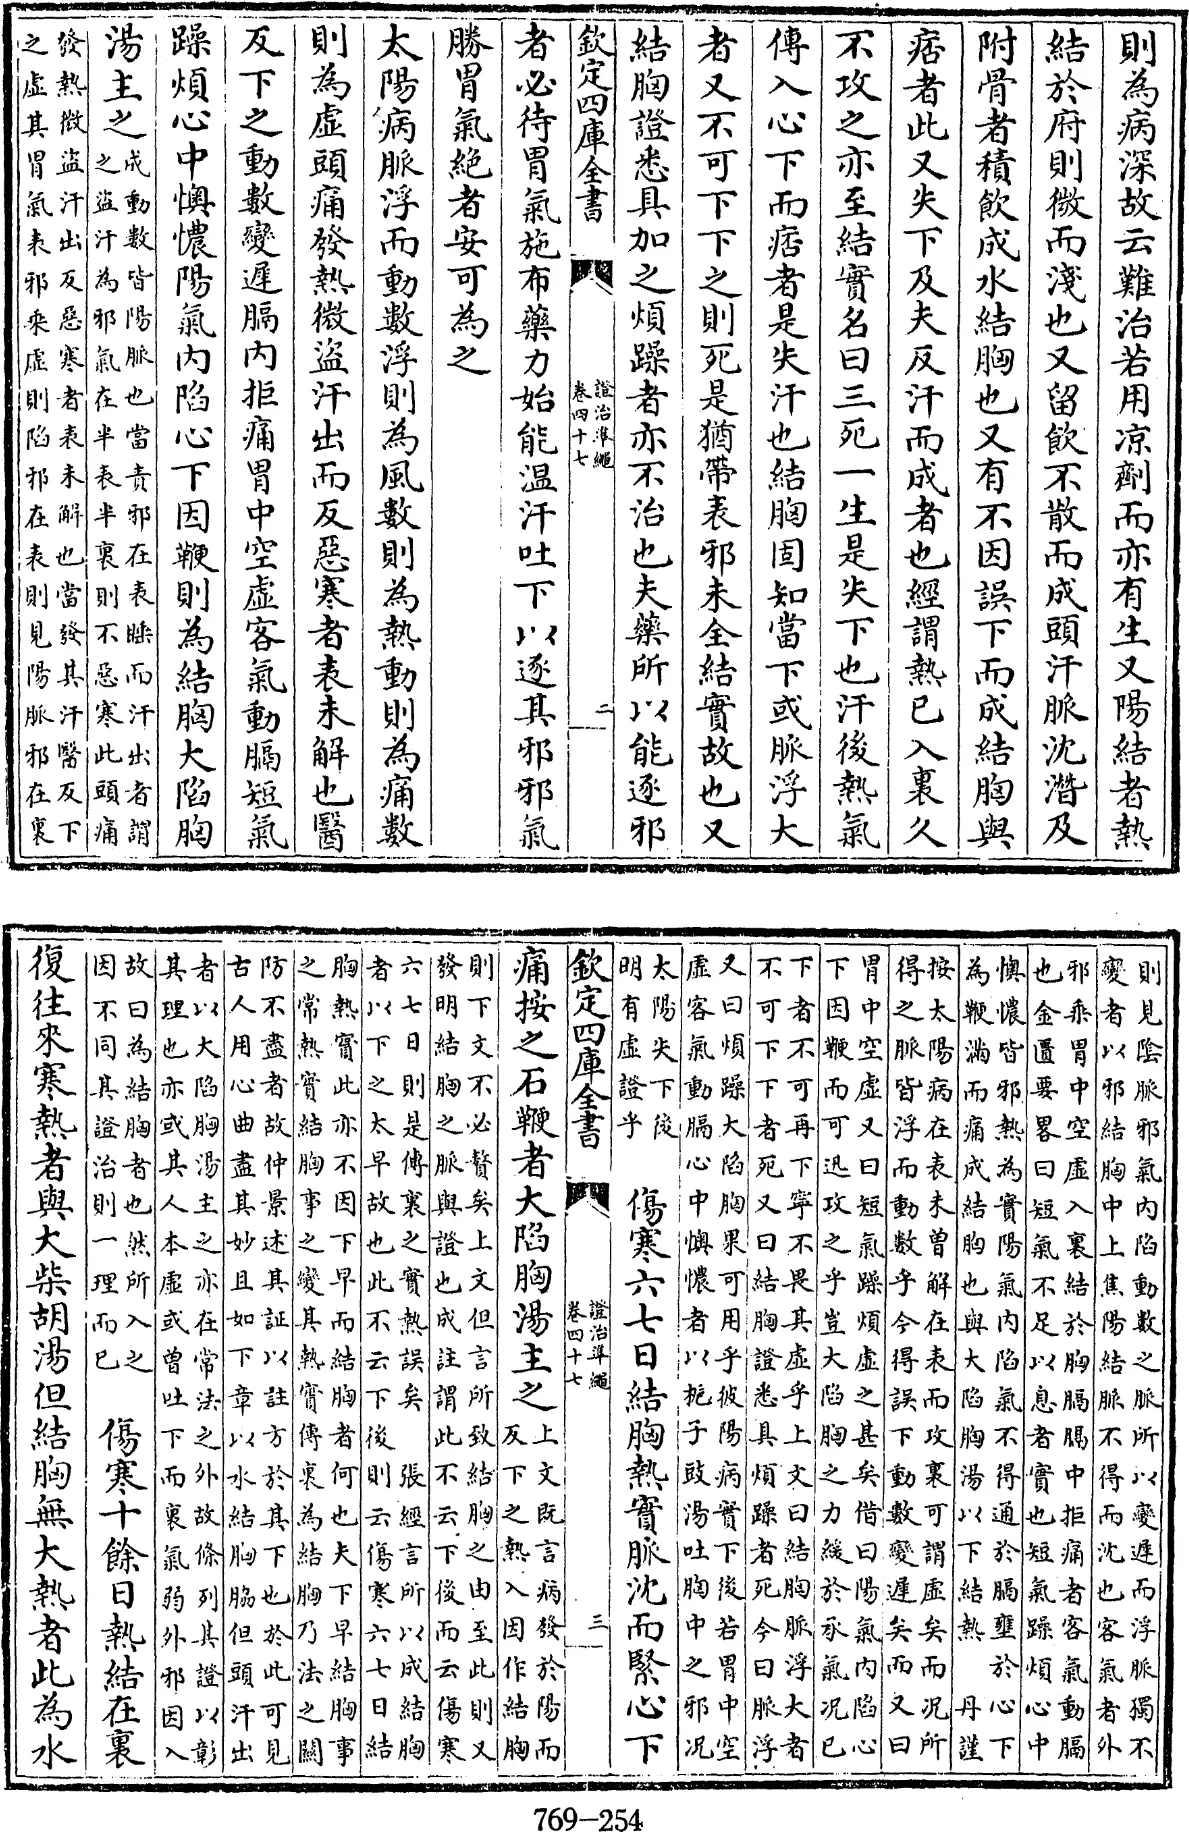 則為病深故云難治若用凉劑而亦有生又陽結者熱
結於府則微而淺也又留飲不散而成頭汗脈沈潛及
附骨者積飲成水結胸也又有不因誤下而成結胸與
痞者此又失下及夫反汗而成者也經謂熱已入裏久
不攻之亦至結實名曰三死一生是失下也汗後熱氣
傳入心下而痞者是失汗也結胸固知當下或脈浮大
者又不可下下之則死是猶帶表邪未全結實故也又
結胸證悉具加之煩躁者亦不治也夫藥所以能逐邪
欽定四庫全書
證治準繩
卷四十七
二
者必待胃氣施布藥力始能温汗吐下以逐其邪邪氣
勝胃氣絕者安可為之
太陽病脈浮而動數浮則為風數則為熱動則為痛數
則為虛頭痛發熱微盜汗出而反惡寒者表未解也醫
反下之動數變遲膈內拒痛胃中空虛客氣動膈短氣
躁煩心中懊憹陽氣內陷心下因鞕則為結胸大陷胸
湯主之
成動數皆陽脈也當責邪在表睡而汗出者謂
之盜汗為邪氣在半表半裏則不惡寒此頭痛
發熱微盜汗出反惡寒者表未解也當發其汗醫反下
之虛其胃氣表邪乘虛則陷邪在表則見陽脈邪在裏
則見陰脈邪氣內陷動數之脈所以變遲而浮脈獨不
變者以邪結胸中上焦陽結脈不得而沈也客氣者外
邪乘胃中空虛入裏結於胸膈膈中拒痛者客氣動膈
也金匱要畧曰短氣不足以息者實也短氣躁煩心中
懊憹皆邪熱為實陽氣內陷氣不得通於膈壅於心下
為鞕滿而痛成結胸也與大陷胸湯以下結熱 丹謹
按太陽病在表未曾解在表而攻裏可謂虛矣而況所
得之脈皆浮而動數乎今得誤下動數變遲矣而又曰
胃中空虛又曰短氣躁煩虛之甚矣借曰陽氣內陷心
下因鞕而可迅攻之乎豈大陷胸之力緩於承氣況已
下者不可再下寧不畏其虛乎上文曰結胸脈浮大者
不可下下者死又曰結胸證悉具煩躁者死今曰脈浮
又曰煩躁大陷胸果可用乎彼陽病實下後若胃中空
虛客氣動膈心中懊憹者以梔子豉湯吐胸中之邪況
太陽失下後
明有虛證乎
傷寒六七日結胸熱實脈沈而緊心下
欽定四庫全書
證治準繩
卷四十七
三
痛按之石鞕者大陷胸湯主之
上文既言病發於陽而
反下之熱入因作結胸
則下文不必贅矣上文但言所致結胸之由至此則又
發明結胸之脈與證也成註謂此不云下後而云傷寒
六七日則是傳裏之實熱誤矣 張經言所以成結胸
者以下之太早故也此不云下後則云傷寒六七日結
胸熱實此亦不因下早而結胸者何也夫下早結胸事
之常熱實結胸事之變其熱實傳裏為結胸乃法之闕
防不盡者故仲景述其証以註方於其下也於此可見
古人用心曲盡其妙且如下章以水結胸脇但頭汗出
者以大陷胸湯主之亦在常法之外故條列其證以彰
其理也亦或其人本虛或曾吐下而裏氣弱外邪因入
故曰為結胸者也然所入之
因不同其證治則一理而已
傷寒十餘日熱結在裏
復往來寒熱者與大柴胡湯但結胸無大熱者此為水
769-254